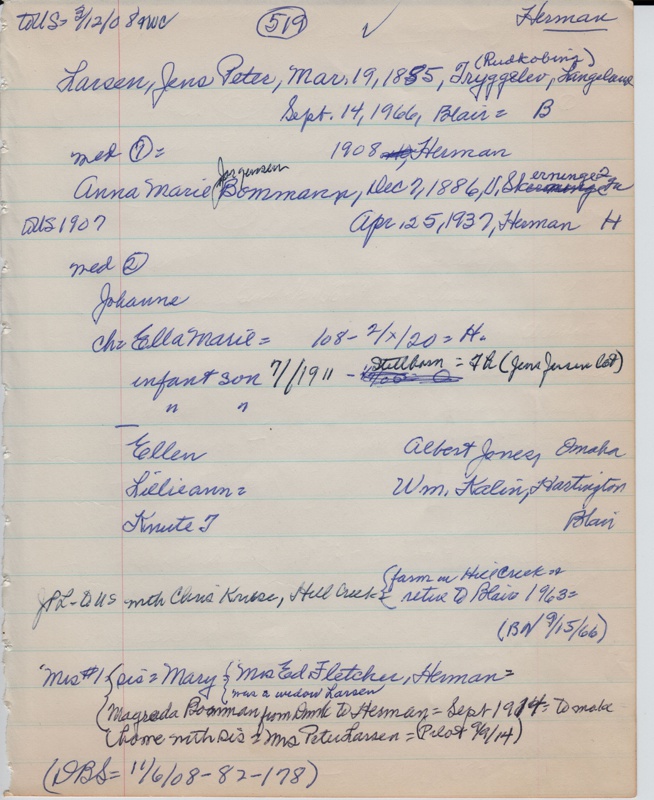 to US = 3/12/08 ✓
519
Herman
(Rudkobing)
Larsen, Jens Peter, Mar. 19, 1885, Tryggelev, Langeland
Sept. 14, 1966, Blair = B
med ① = 1908 Herman
Jorgensen
Anna Marie Bommann, Dec 7, 1886, V. Skerninge
to US 1907 Apr. 25, 1937, Herman H
med ②
Johanne
ch = Ella Marie = 108 - 2/x/20 = H.
infant son 7/1911 - Stillborn = (Jens Jensen lot)
" "
Ellen Albert Jones, Omaha
Lillieann = Wm. Kalin, Hartington
Knute T Blair
JPL - to US with Chris Kruse, Hill Creek = { farm on Hill Creek
retire to Blair 1963 =
(BN 9/15/66)
Mrs #1 { sis = Mary { Mrs Ed Fletcher, Herman =
{ was a widow Larsen
{ Magreda Bomman from Dmk to Herman = Sept 1914 = to make
( home with sis = Mrs Peter Larsen = (Pilot 9/9/14)
(DBS = 11/6/08 - 82 - 178)